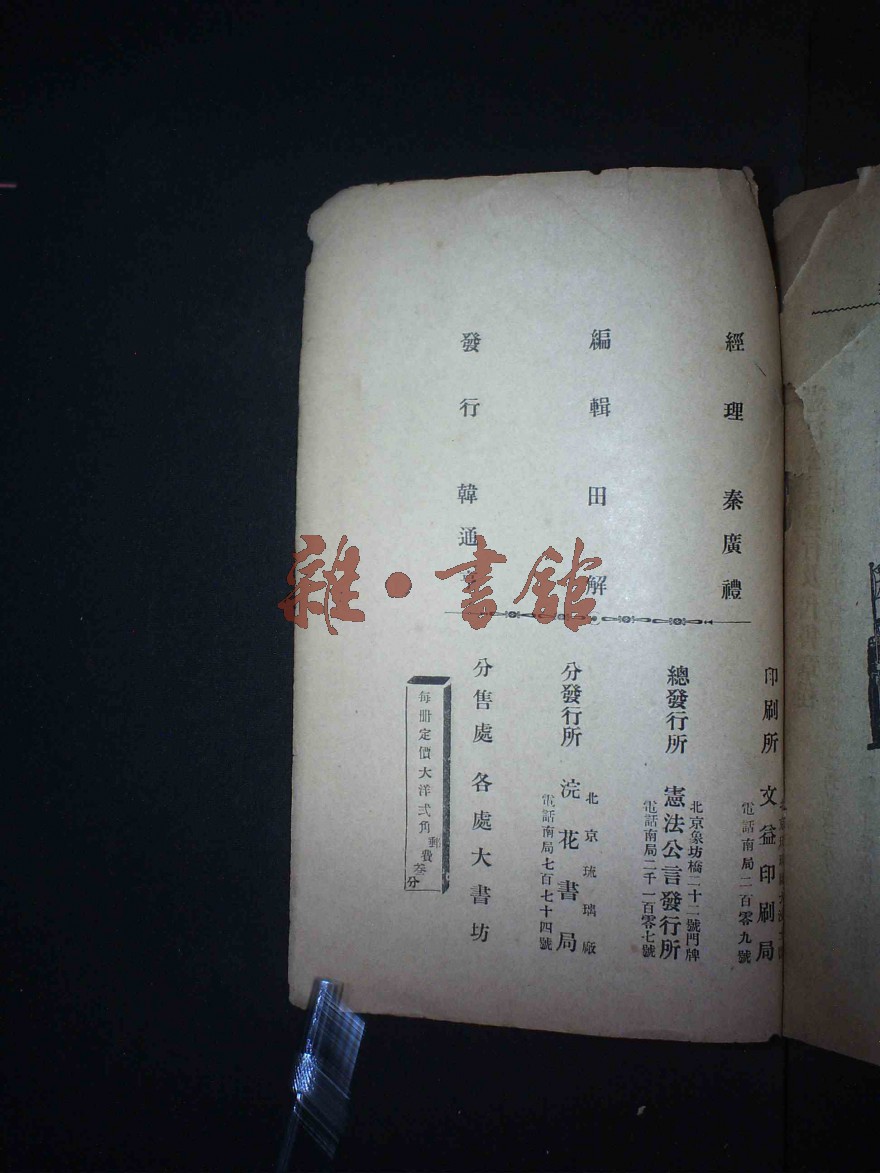 經理 秦廣禮
編輯 田解
發行 韓通
印刷所 文益印刷局
電話南局二百零九號
北京象坊橋二十二號門牌
總發行所 憲法公言發行所
電話南局二千一百零七號
北京琉璃廠
分發行所 浣花書局
電話南局七百七十四號
分售處 各處大書坊
每冊定價大洋弍角郵費叁分
雜·書館